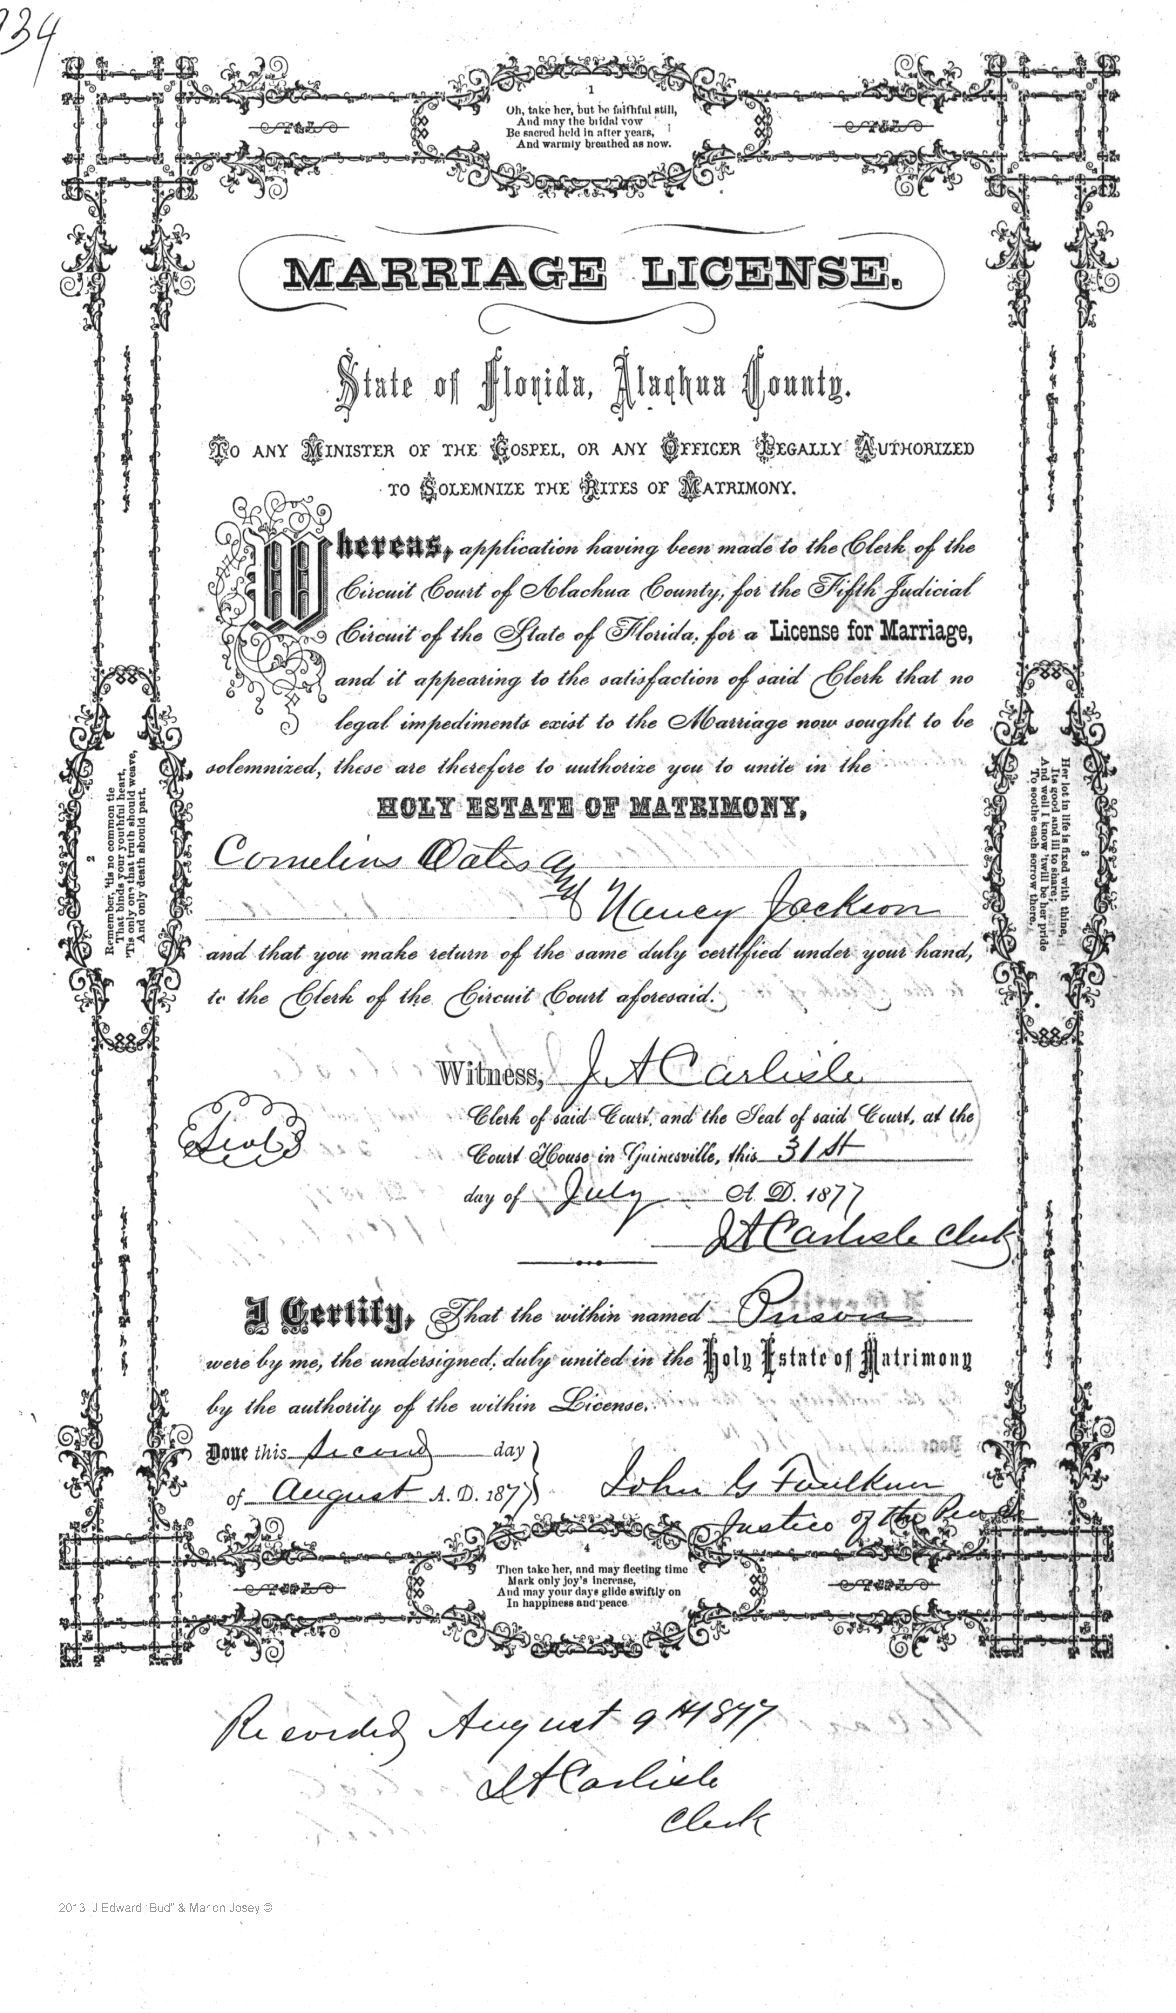 934
1
Oh, take her, but be faithful still,
And may the bridal vow
Be sacred held in after years,
And warmly breathed as now.
MARRIAGE LICENSE.
State of Florida, Alachua County.
TO ANY MINISTER OF THE GOSPEL, OR ANY OFFICER LEGALLY AUTHORIZED
TO SOLEMNIZE THE RITES OF MATRIMONY.
Whereas, application having been made to the Clerk of the
Circuit Court of Alachua County, for the Fifth Judicial
Circuit of the State of Florida, for a License for Marriage,
and it appearing to the satisfaction of said Clerk that no
legal impediments exist to the Marriage now sought to be
solemnized, these are therefore to authorize you to unite in the
HOLY ESTATE OF MATRIMONY,
Cornelius Oates and
Nancy Jackson
and that you make return of the same duly certified under your hand,
to the Clerk of the Circuit Court aforesaid.
2
Remember, 'tis no common tie
That binds your youthful heart,
'Tis only one that truth should weave,
And only death should part.
3
Her lot in life is fixed with thine,
Its good and ill to share;
And well I know 'twill be her pride
To soothe each sorrow there.
Witness, J A Carlisle
Clerk of said Court, and the Seal of said Court, at the
Seal
Court House in Gainesville, this 31st
day of July A. D. 1877
J A Carlisle Clerk
I Certify, That the within named Persons
were by me, the undersigned, duly united in the Holy Estate of Matrimony
by the authority of the within License.
Done this Second day
of August A. D. 1877
John G Faulkner
Justice of the Peace
4
Then take her, and may fleeting time
Mark only joy's increase,
And may your days glide swiftly on
In happiness and peace
Recorded August 9th 1877
J A Carlisle
Clerk
2013 J Edward "Bud" & Marion Josey ©